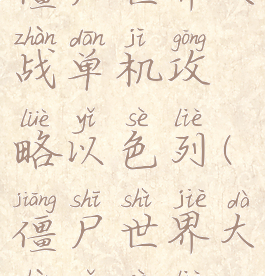 僵尸世界大
zhàn dān jī gōng
战单机攻
lüè yǐ sè liè
略以色列(
jiāng shī shì jiè dà
僵尸世界大